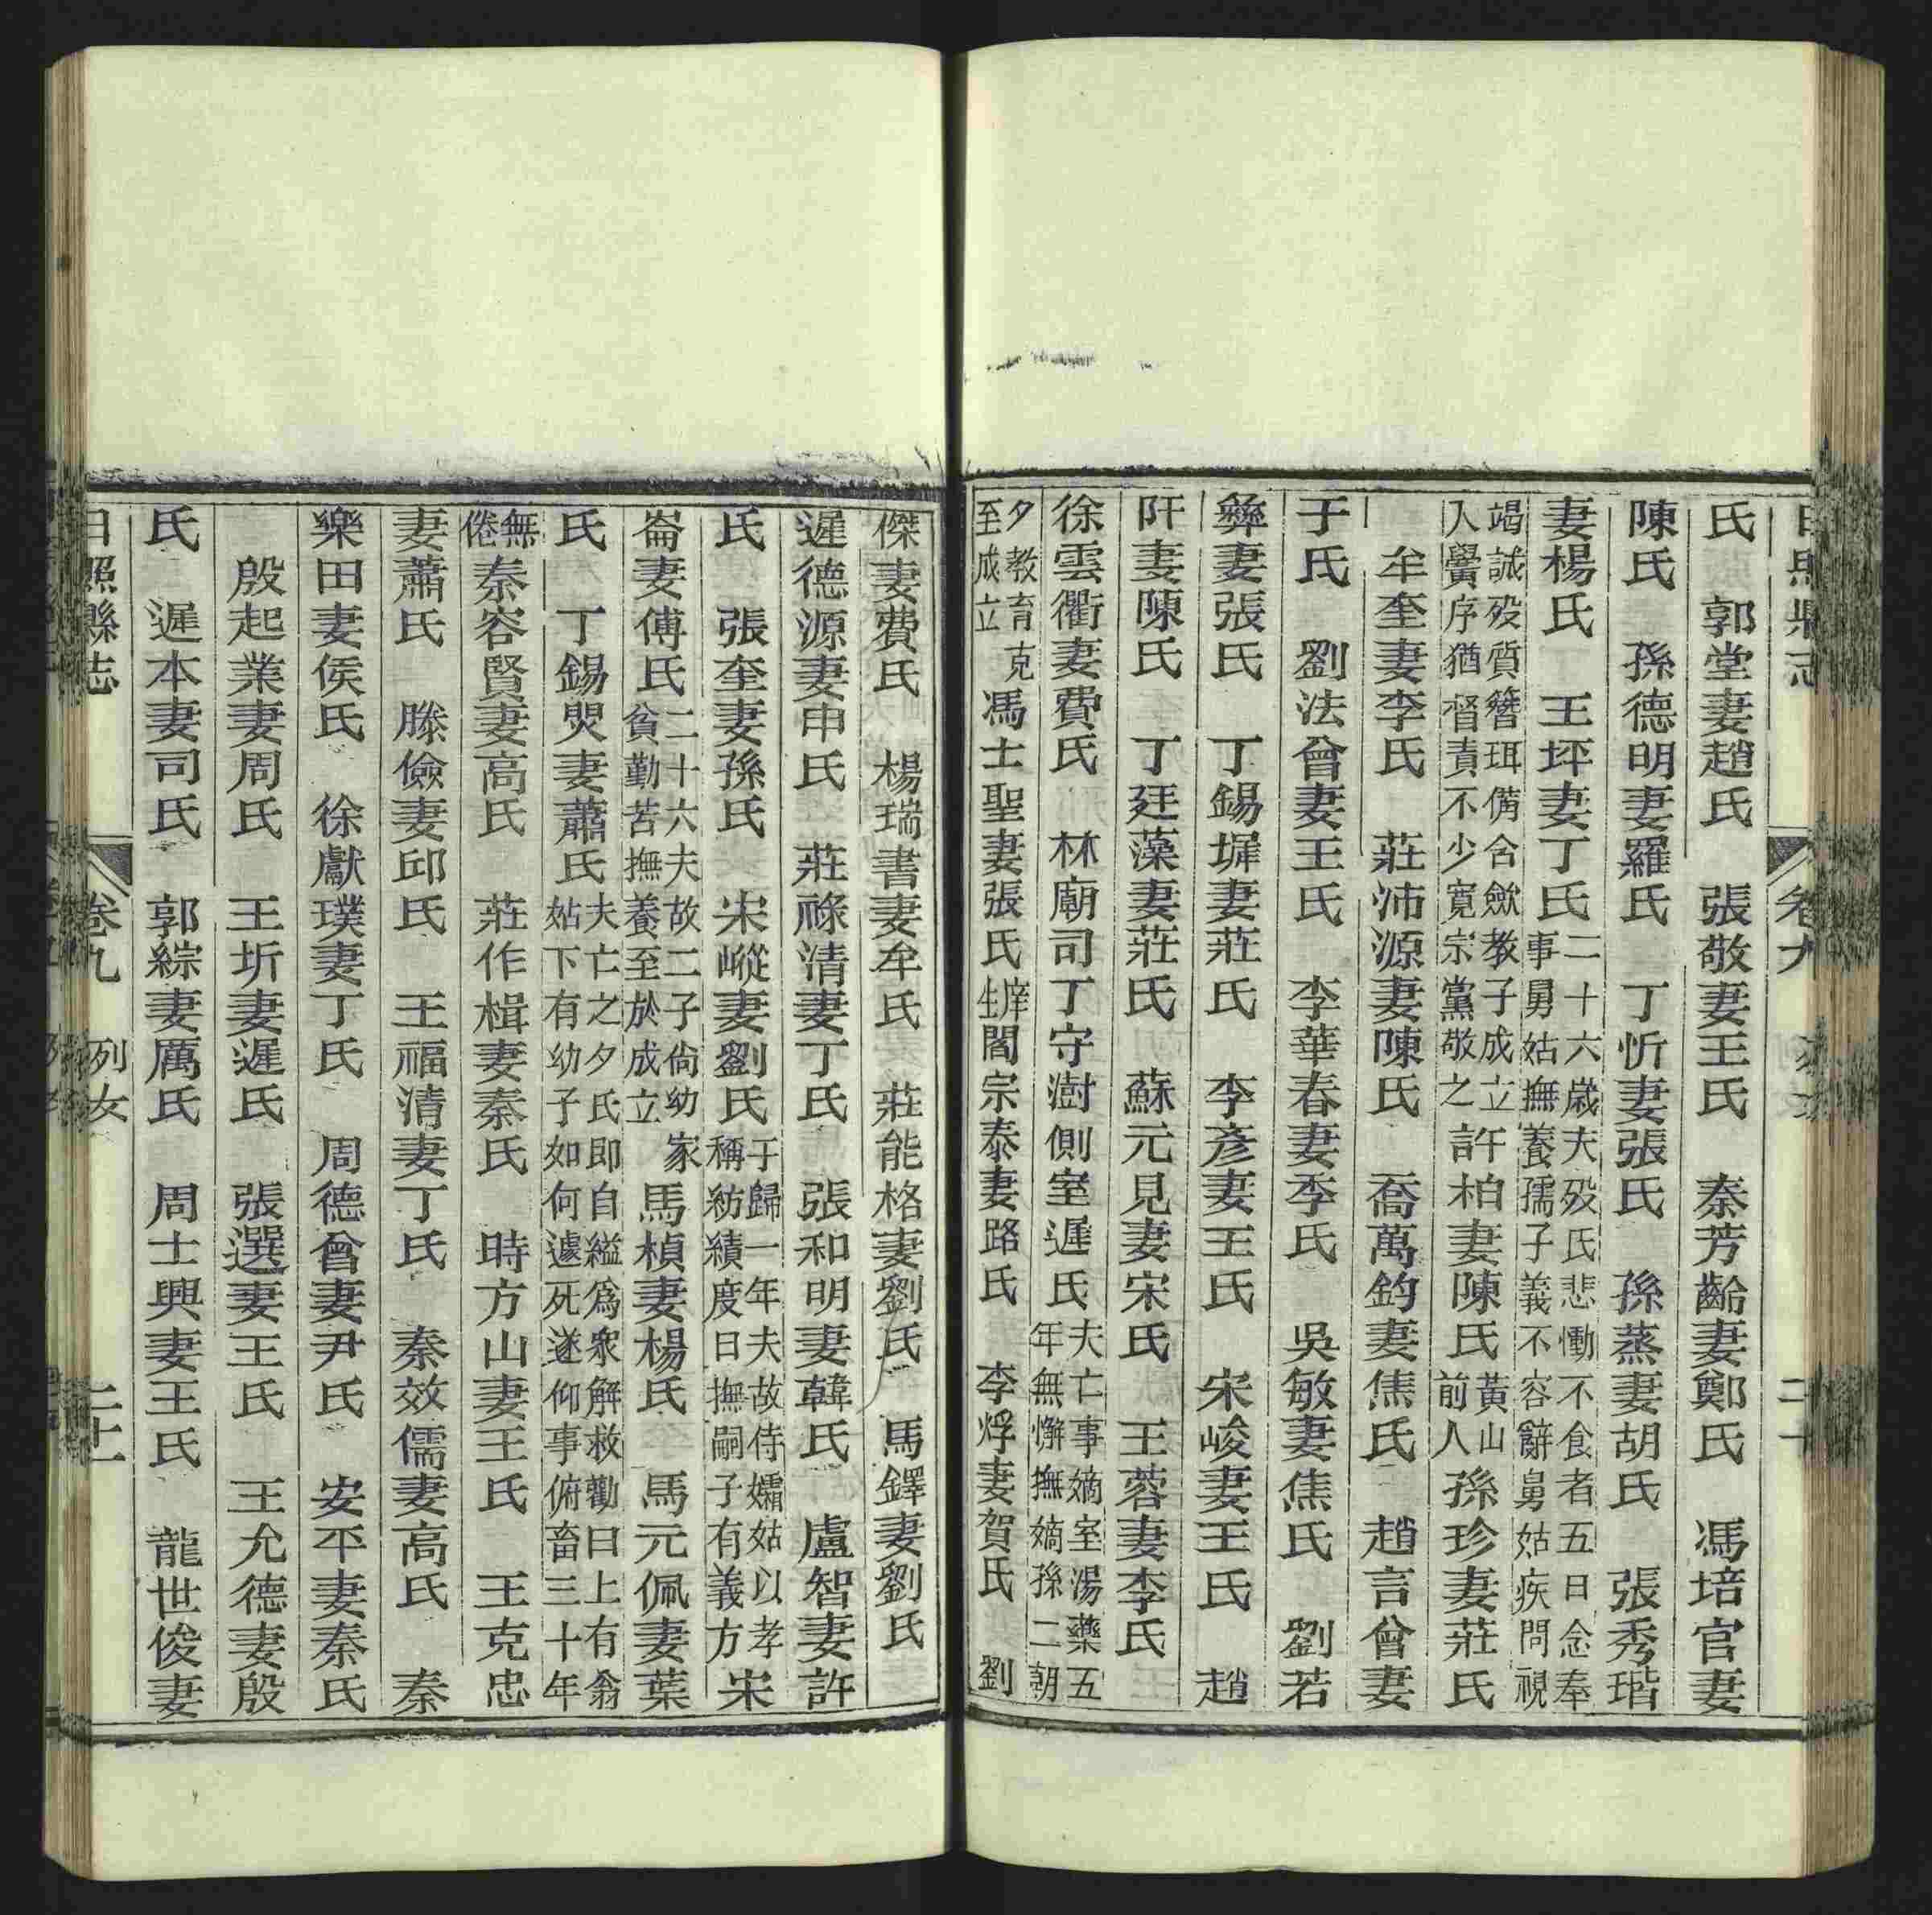 日照縣志 卷九
氏 郭堂妻趙氏 張敬妻王氏 秦芳齡妻鄭氏 馮培官妻
陳氏 孫德明妻羅氏 丁忻妻張氏 孫蒸妻胡氏 張秀瑎
妻楊氏 王坪妻丁氏 二十六歲夫歿氏悲慟不食者五日念奉
事舅姑撫養孺子義不容辭舅姑疾問視
竭誠歿質簪珥備含歛教子成立
入黌序猶督責不少寬宗黨敬之 許柏妻陳氏 黃山
前人 孫珍妻莊氏
牟奎妻李氏 莊沛源妻陳氏 喬萬鈞妻焦氏 趙言曾妻
于氏 劉法曾妻王氏 李華春妻李氏 吳敏妻焦氏 劉若
彝妻張氏 丁錫墀妻莊氏 李彥妻王氏 宋峻妻王氏 趙
阡妻陳氏 丁廷藻妻莊氏 蘇元見妻宋氏 王蓉妻李氏
徐雲衢妻費氏 林廟司丁守澍側室遲氏 夫亡事嫡室湯藥五
年無懈撫嫡孫二朝
夕教育克
至成立 馮士聖妻張氏 庠
生閻宗泰妻路氏 李烰妻賀氏 劉
傑妻費氏 楊瑞書妻牟氏 莊能格妻劉氏 馬鐸妻劉氏
遲德源妻申氏 莊祿清妻丁氏 張和明妻韓氏 盧智妻許
氏 張奎妻孫氏 宋嵷妻劉氏 于歸一年夫故侍孀姑以孝
稱紡績度日撫嗣子有義方 宋
崙妻傅氏 二十六夫故二子尙幼家
貧勤苦撫養至於成立 馬楨妻楊氏 馬元佩妻葉
氏 丁錫煚妻蕭氏 夫亡之夕氏即自縊爲衆解救勸曰上有翁
姑下有幼子如何遽死遂仰事俯畜三十年
無
倦 秦容賢妻高氏 莊作楫妻秦氏 時方山妻王氏 王克忠
妻蕭氏 滕儉妻邱氏 王福清妻丁氏 秦效儒妻高氏 秦
樂田妻侯氏 徐獻璞妻丁氏 周德曾妻尹氏 安平妻秦氏
殷起業妻周氏 王圻妻遲氏 張選妻王氏 王允德妻殷
氏 遲本妻司氏 郭綜妻厲氏 周士興妻王氏 龍世俊妻
日照縣志 卷九 列女 二十一